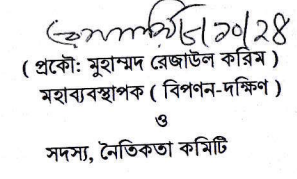 ( প্রকৌ: মুহাম্মদ রেজাউল করিম )
মহাব্যবস্থাপক ( বিপণন-দক্ষিণ )
ও
সদস্য, নৈতিকতা কমিটি